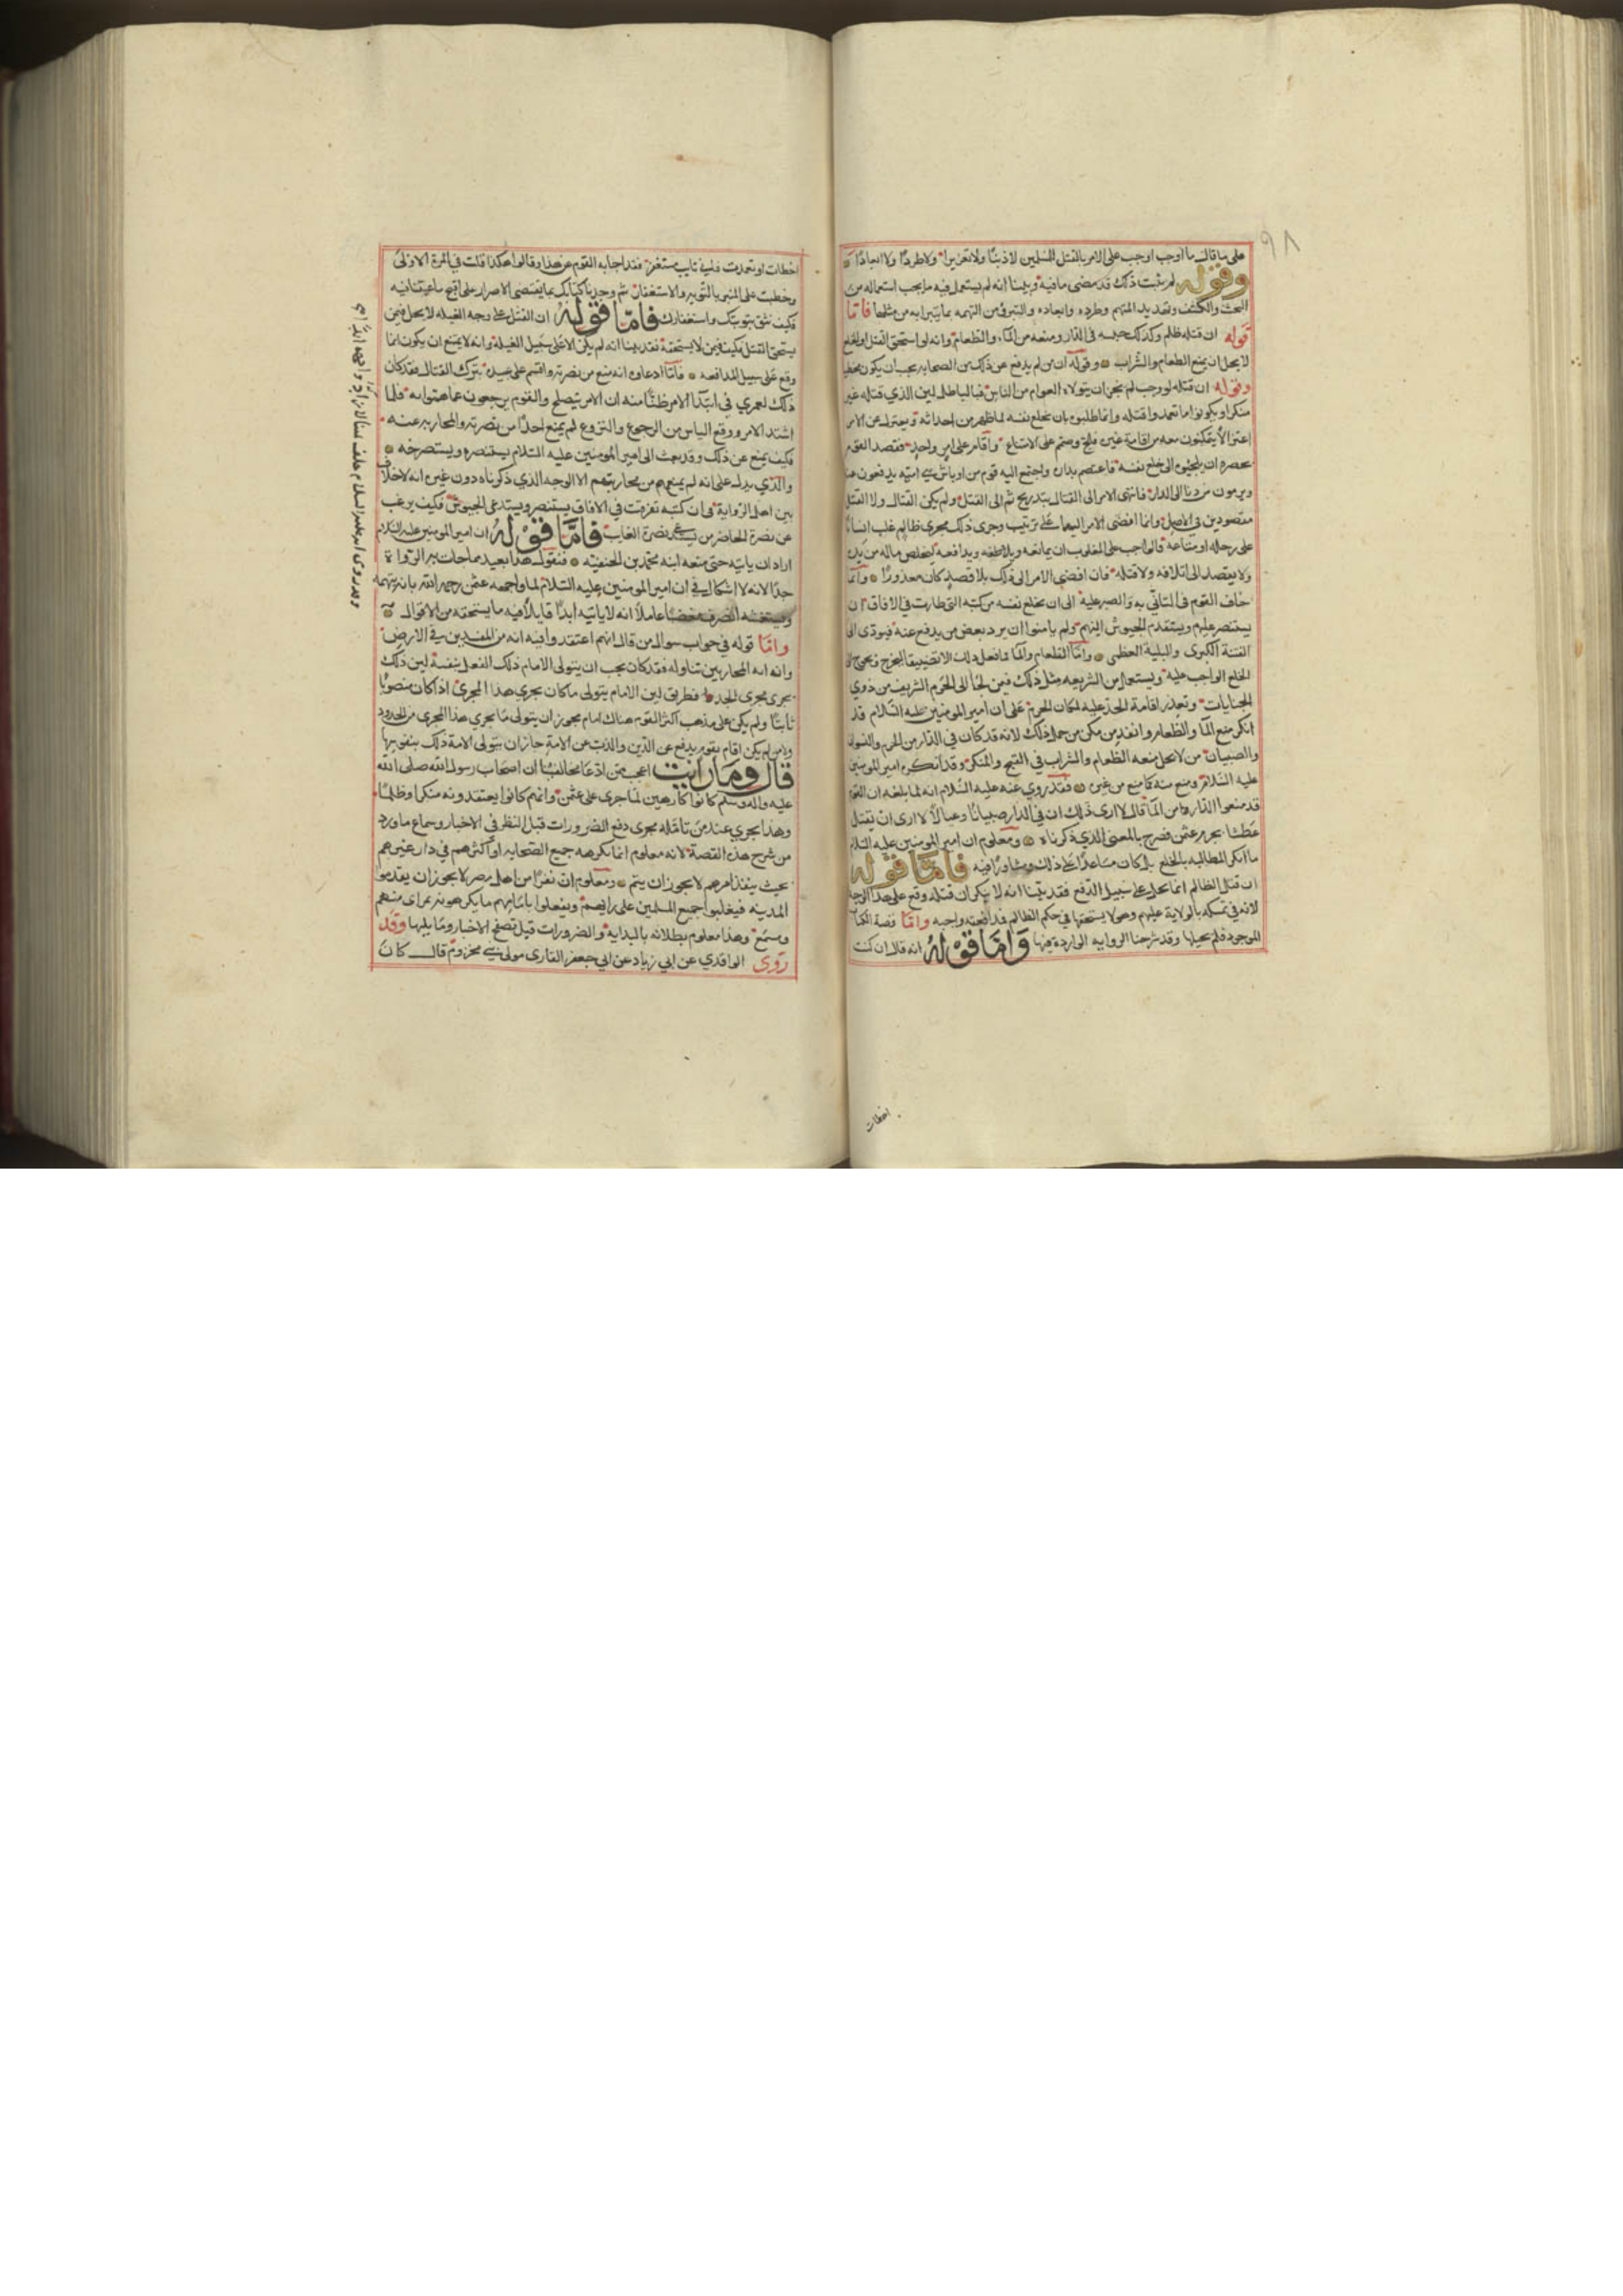 على ما قال ما اوجب اوجب على الامر بالقتل للمسلمين لا ذنبًا ولا تعزيرا ولا طردًا ولا ابعادًا
وقوله لم يثبت ذلك قد مضى ما فيه وبينا انه لم يستعمل فيه ما يجب استعماله من
البحث والكشف وتهديد المتهم وطرده وابعاده والتبرؤ من التهمه بما يتبرا به من مثلها فامّا
قوله ان قتله ظلم وكذلك حبسه في الدار ومنعه من الماء والطعام وانه لو استحق القتل او الخلع
لا يحل ان يمنع الطعام والشراب وقوله ان من لم يدفع عن ذلك من الصحابه يجب ان يكون مخطيا
وقوله ان قتله لو وجب لم يجز ان يتولاه العوام من الناس فباطل لين الذي قتله غير
منكر او يكونوا ما تعمدوا قتله وانما طلبوه بان يخلع نفسه لما ظهر من احداثه ويعتزل عن الامر
اعتزالا يتمكنون معه من اقامة غيره فلج وصمم على الامتناع واقام على امر واحد فقصد القوم
بحصره ان يلجئوه الى خلع نفسه فاعتصم بداره واجتمع اليه قوم من اوباش بني اميّه يدفعون عنه
ويرمون من دنا الى الدار فانتهى الامر الى القتال بتدريج ثم الى القتل ولم يكن القتال ولا القتل
مقصودين في الاصل وانما افضى الامر اليهما على ترتيب وجرى ذلك مجرى ظالم غلب انسانًا
على رحله او متاعه فالواجب على المغلوب ان يمانعه ويدافعه ليخلص ماله من يده
ولا يقصد الى اتلافه ولا قتله فان افضى الامر الى ذلك بلا قصد كان معذورًا وانما
خاف القوم في التاني به والصبر عليه الى ان يخلع نفسه من كتبه التي طارت في الافاق ان
يستنصر عليهم ويستقدم الجيوش اليهم ولم يامنوا ان يرد بعض من يدفع عنه فيودى الى
الفتنة الكبرى والبلية العظمى وامّا الطعام والماء فما فعل ذلك الا تضييقا ليخرج فيحوج الى
الخلع الواجب عليه ويستعمل من الشريعه مثل ذلك فيمن لجأ الى الحرم الشريف من ذوي
الجنايات وتعذر اقامة الحد عليه لمكان الحرم على ان امير المومنين عليه السّلام قد
انكر منع الماء والطعام وانفذ من مكن من حمل ذلك لانه قد كان في الدار من الحرم والنسوان
والصبيان من لا يحل منعه الطعام والشراب في القبح والمنكر وقد انكره امير المومنين
عليه السّلام ومنع منه كما منع من غيره فقد روي عنه عليه السّلام انه لما بلغه ان القوم
قد منعوا الدار من الماء قال لا ارى ذلك ان في الدار صبيانًا وعيالًا لا ارى ان يقتل
عطشا بجرم عثمن فصرح بالمعنى الذي ذكرناه ومعلوم ان امير المومنين عليه السّلام
ما انكر المطالبه بالخلع بل كان مساعدًا على ذلك ومشاورًا فيه فامّا قوله
ان قتل الظالم انما يحل على سبيل الدّفع فقد بيّنا انه لا ينكر ان قتله وقع على هذا الوجه
لانه في تمسكه بالولاية عليهم وهو لا يستحقها في حكم الظالم فمدافعته واجبه وامّا قصة الكتاب
الموجود فلم يحيلها وقد شرحنا الروايه الوارده فيها وَامّا قوْلهُ انه قال ان كنت
اخطات
اخطات او تعمدت فاني تايب مستغفر فقد اجابه القوم عن هذا وقالوا هكذا قلت في المرة الاولى
وخطبت على المنبر بالتوبه والاستغفار ثم وجدنا كتابك بما يقتضي الاصرار على اقبح ما عتبنا فيه
فكيف نثق بتوبتك واستغفارك فامّا قوْلهُ ان القتل على وجه الغيله لا يحل فيمن
يستحق القتل فكيف فيمن لا يستحقه فقد بينا انه لم يكن الا على سبيل الغيلة وانه لا يمتنع ان يكون انما
وقع على سبيل المدافعه فامّا ادعاوه انه منع من نصرته واقسم على عبيده بترك القتال فقد كان
ذلك لعمري في ابتداء الامر ظنًّا منه ان الامر يتصلح والقوم يرجعون عما هموا به فلما
اشتد الامر ووقع الياس من الرجوع والنزوع لم يمنع احدًا من نصرته والمحاربه عنه
فكيف يمنع عن ذلك وقد بعث الى امير المومنين عليه السّلام يستنصره ويستصرخه
والذي يدل على انه لم يمنعهم من محاربتهم الا الوجه الذي ذكرناه دون غيره انه لا خلاف
بين اهل الرواية في ان كتبه تفرقت في الافاق يستنصر ويستدعى الجيوش فكيف يرغب
عن نصرة الحاضر من يستدعى نصرة الغايب فامَّا قوْلهُ ان امير المومنين عليه السّلام
اراد ان ياتيه حتى منعه ابنه محمد بن الحنفيّه فنقول هذا بعيد مما جات به الرواية
جدًا لانه لا اشكال في ان امير المومنين عليه السّلام لما واجهه عثمن رحمه الله بانه يتهمه
ويستغشه انصرف مغضبًا عاملًا انه لا ياتيه ابدًا قايلًا فيه ما يستحقه من الاقوال
وامّا قوله في جواب سوال من قال انهم اعتقدوا فيه انه من المفسدين في الارض
وانه ايه المحاربين تناوله فقد كان يجب ان يتولى الامام ذلك الفعل بنفسه لين ذلك
يجرى مجرى الحد فطريق لين الامام يتولى ما كان يجرى هذا المجرى اذا كان منصوبًا
ثابتًا ولم يكن على مذهب اكثر القوم هناك امام يجوز ان يتولى ما يجري هذا المجرى من الحدود
ولين لم يكن امام يقوم بدفع عن الدّين والذب عن الامة جاز ان يتولى الامة ذلك بنفوسها
قال ومَا رايت اعجب من ادّعا مخالفينا ان اصحاب رسول الله صلى الله
عليه واله وسلّم كانوا كارهين لما جرى على عثمن وانهم كانوا يعتقدونه منكرا وظلمًا
وهذا يجري عند من تامله مجرى دفع الضرورات قبل النظر في الاخبار وسماع ما ورد
من شرح هذه القصة لانه معلوم انما يكرهه جميع الصّحابه او اكثرهم في دار عزهم
بحيث ينفذ امرهم لا يجوز ان يتم ومعلوم ان نفرًا من اهل مصر لا يجوز ان يقدموا
المدينه فيغلبوا جميع المسلمين على رايهم ويفعلوا بامامهم ما يكرهونه بمراى منهم
ومسمع وهذا معلوم بطلانه بالبداية والضرورات قبل تصفح الاخبار وما يليها وقد
روى الواقدي عن ابي زياد عن ابي جعفر القارى مولى بني مخزوم قال كان